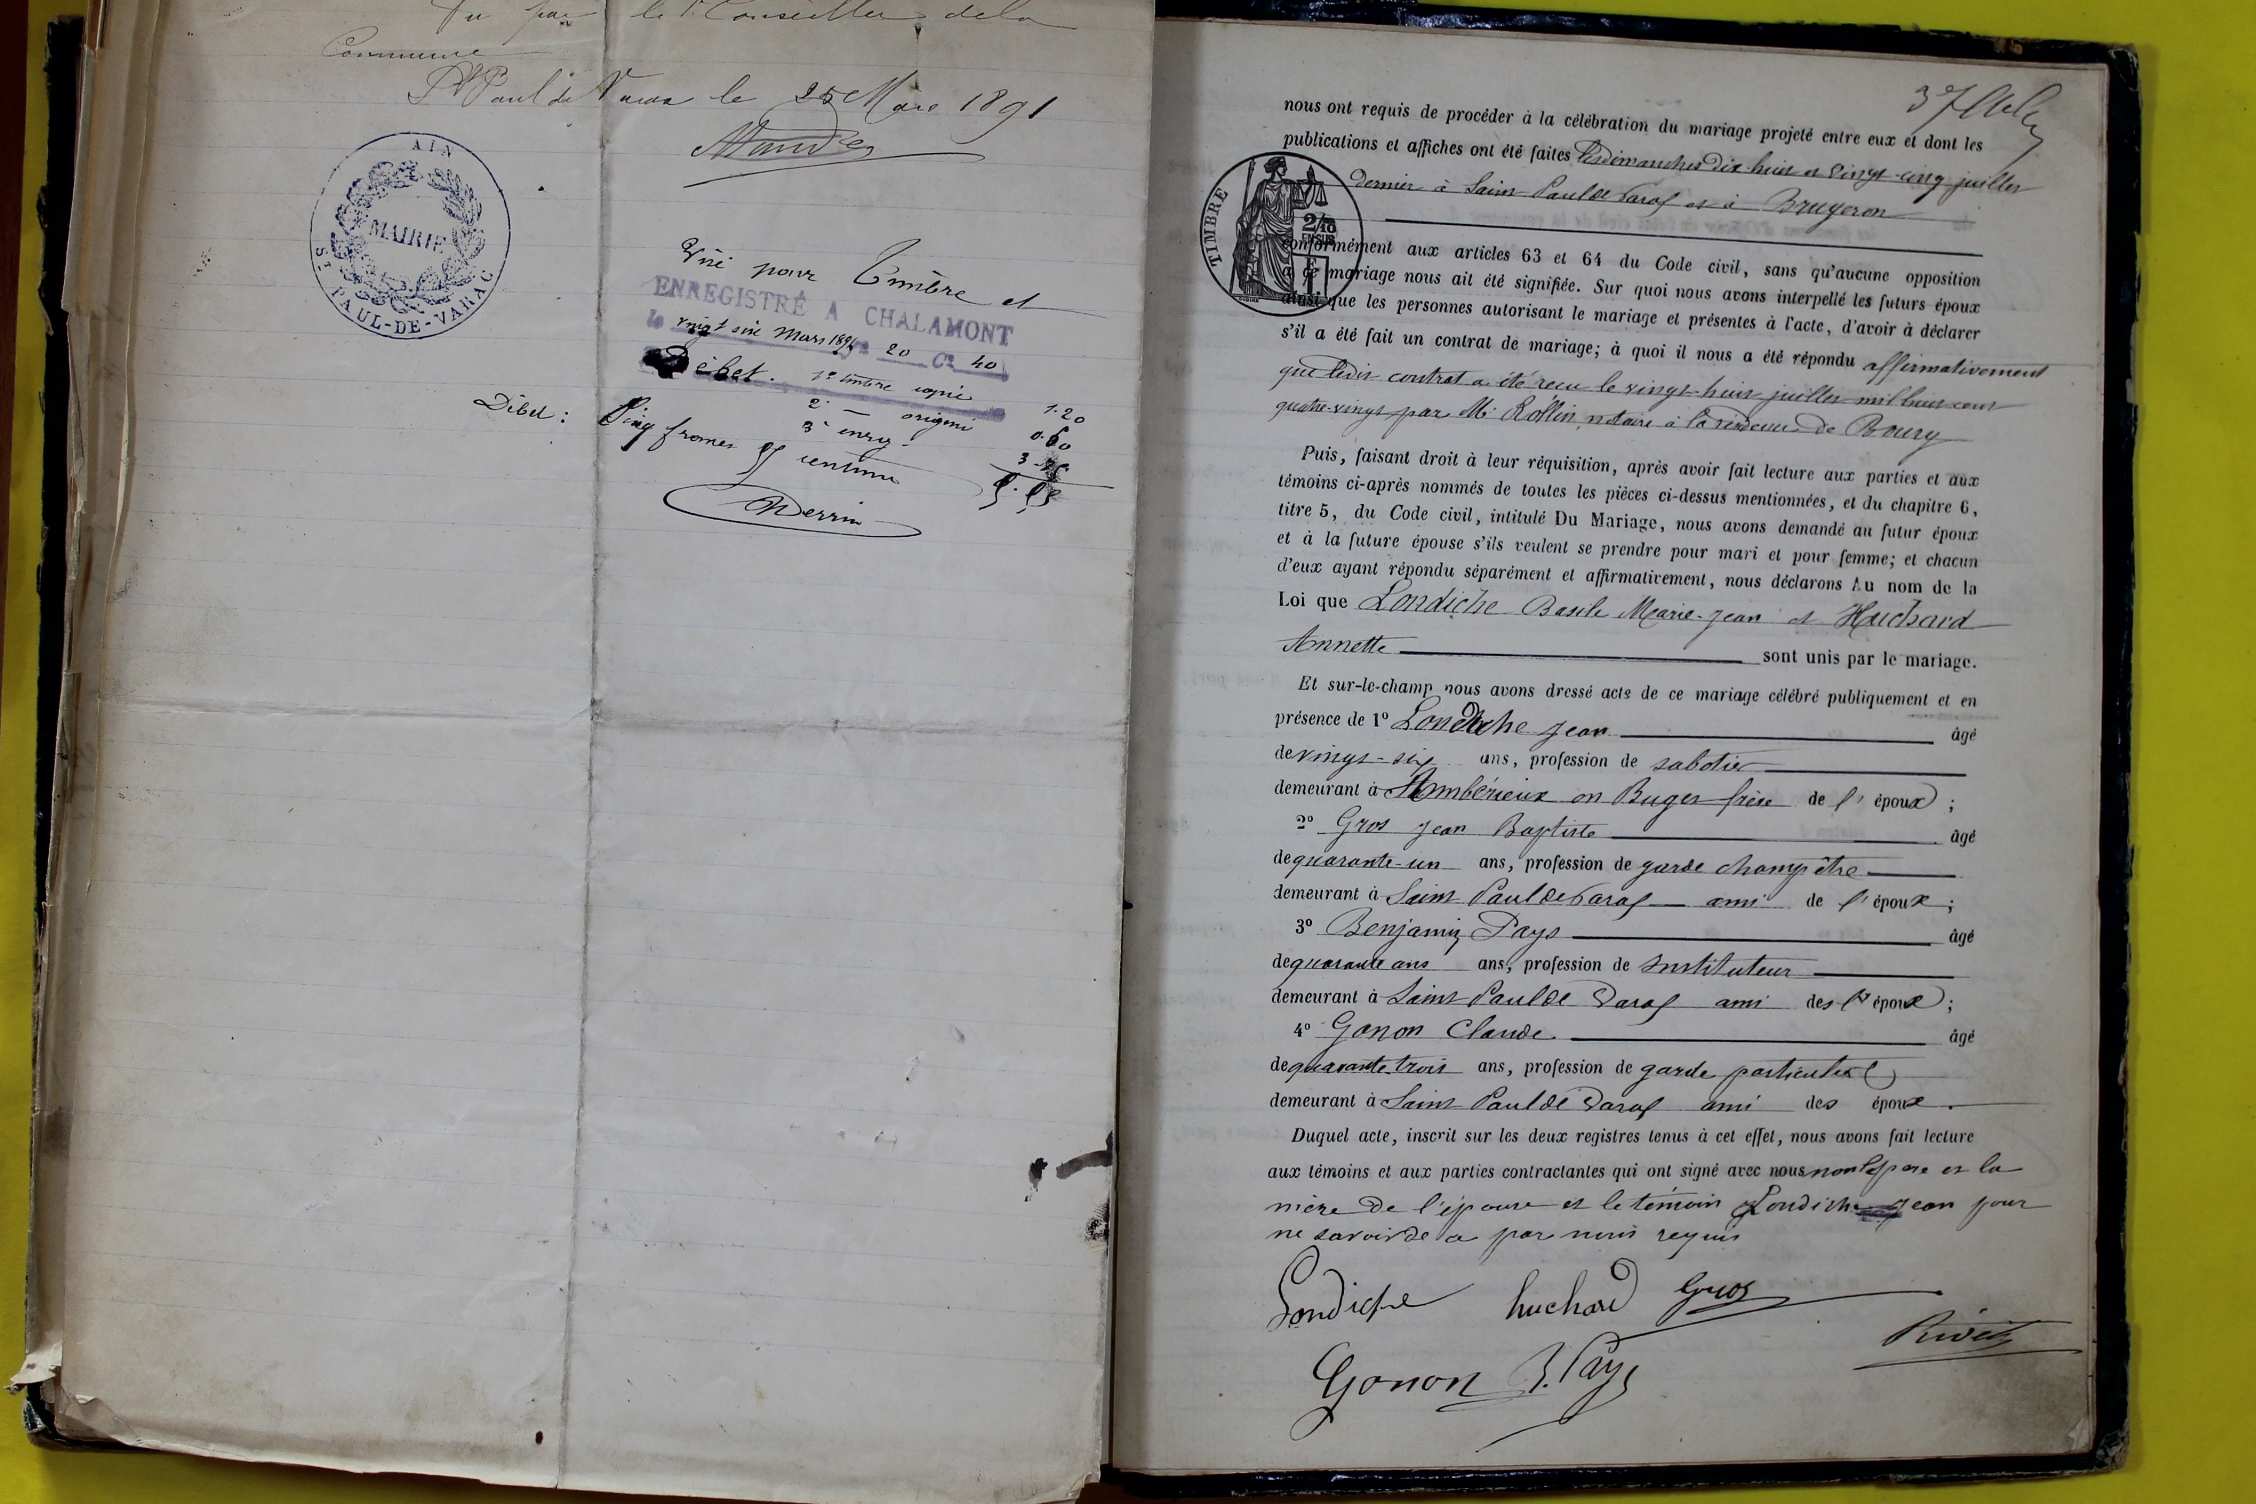 Vu par le 1r Conseiller de la
Commune
St Paul de Varax le 25 Mars 1891
AIN
MAIRIE
ST PAUL-DE-VARAC
Visé pour Timbre et
ENREGISTRÉ A CHALAMONT
le vingt six Mars 1891 fo 20 Ce 40
Débet. 1o timbre copie 1.20
2o — origini 0.60
3o enreg.
Débet : Cinq francs centimes
nous ont requis de procéder à la célébration du mariage projeté entre eux et dont les
publications et affiches ont été faites les dimanches dix-huit et vingt-cinq juillet
dernier à Saint Paul de Varax et à Brugeron
TIMBRE
conformément aux articles 63 et 64 du Code civil, sans qu'aucune opposition
à ce mariage nous ait été signifiée. Sur quoi nous avons interpellé les futurs époux
ainsi que les personnes autorisant le mariage et présentes à l'acte, d'avoir à déclarer
s'il a été fait un contrat de mariage; à quoi il nous a été répondu affirmativement
que ledit contrat a été recu le vingt-huit juillet mil huit cent
quatre-vingt par Me Rollin, notaire à la résidence de Bourg
Puis, faisant droit à leur réquisition, après avoir fait lecture aux parties et aux
témoins ci-après nommés de toutes les pièces ci-dessus mentionnées, et du chapitre 6,
titre 5, du Code civil, intitulé Du Mariage, nous avons demandé au futur époux
et à la future épouse s'ils veulent se prendre pour mari et pour femme; et chacun
d'eux ayant répondu séparément et affirmativement, nous déclarons Au nom de la
Loi que Londiche Basile Marie-Jean et Huchard
Annette sont unis par le mariage.
Et sur-le-champ nous avons dressé acte de ce mariage célébré publiquement et en
présence de 1o Londiche Jean âgé
de vingt-six ans, profession de sabotier
demeurant à Ambérieux en Bugey frère de l' époux ;
2o Gros Jean Baptiste âgé
de quarante-un ans, profession de garde champêtre
demeurant à Saint Paul de Varax ami de l' époux ;
3o Benjamin Pays âgé
de quarante ans ans, profession de instituteur
demeurant à Saint Paul de Varax ami des époux ;
4o Gonon Claude âgé
de quarante-trois ans, profession de garde particulier
demeurant à Saint Paul de Varax ami des époux.
Duquel acte, inscrit sur les deux registres tenus à cet effet, nous avons fait lecture
aux témoins et aux parties contractantes qui ont signé avec nous non le père et la
mère de l'épouse et le témoin Londiche Jean pour
ne savoir de ce par nous requis
Londiche huchard Gros
Rivet
Gonon B. Pays